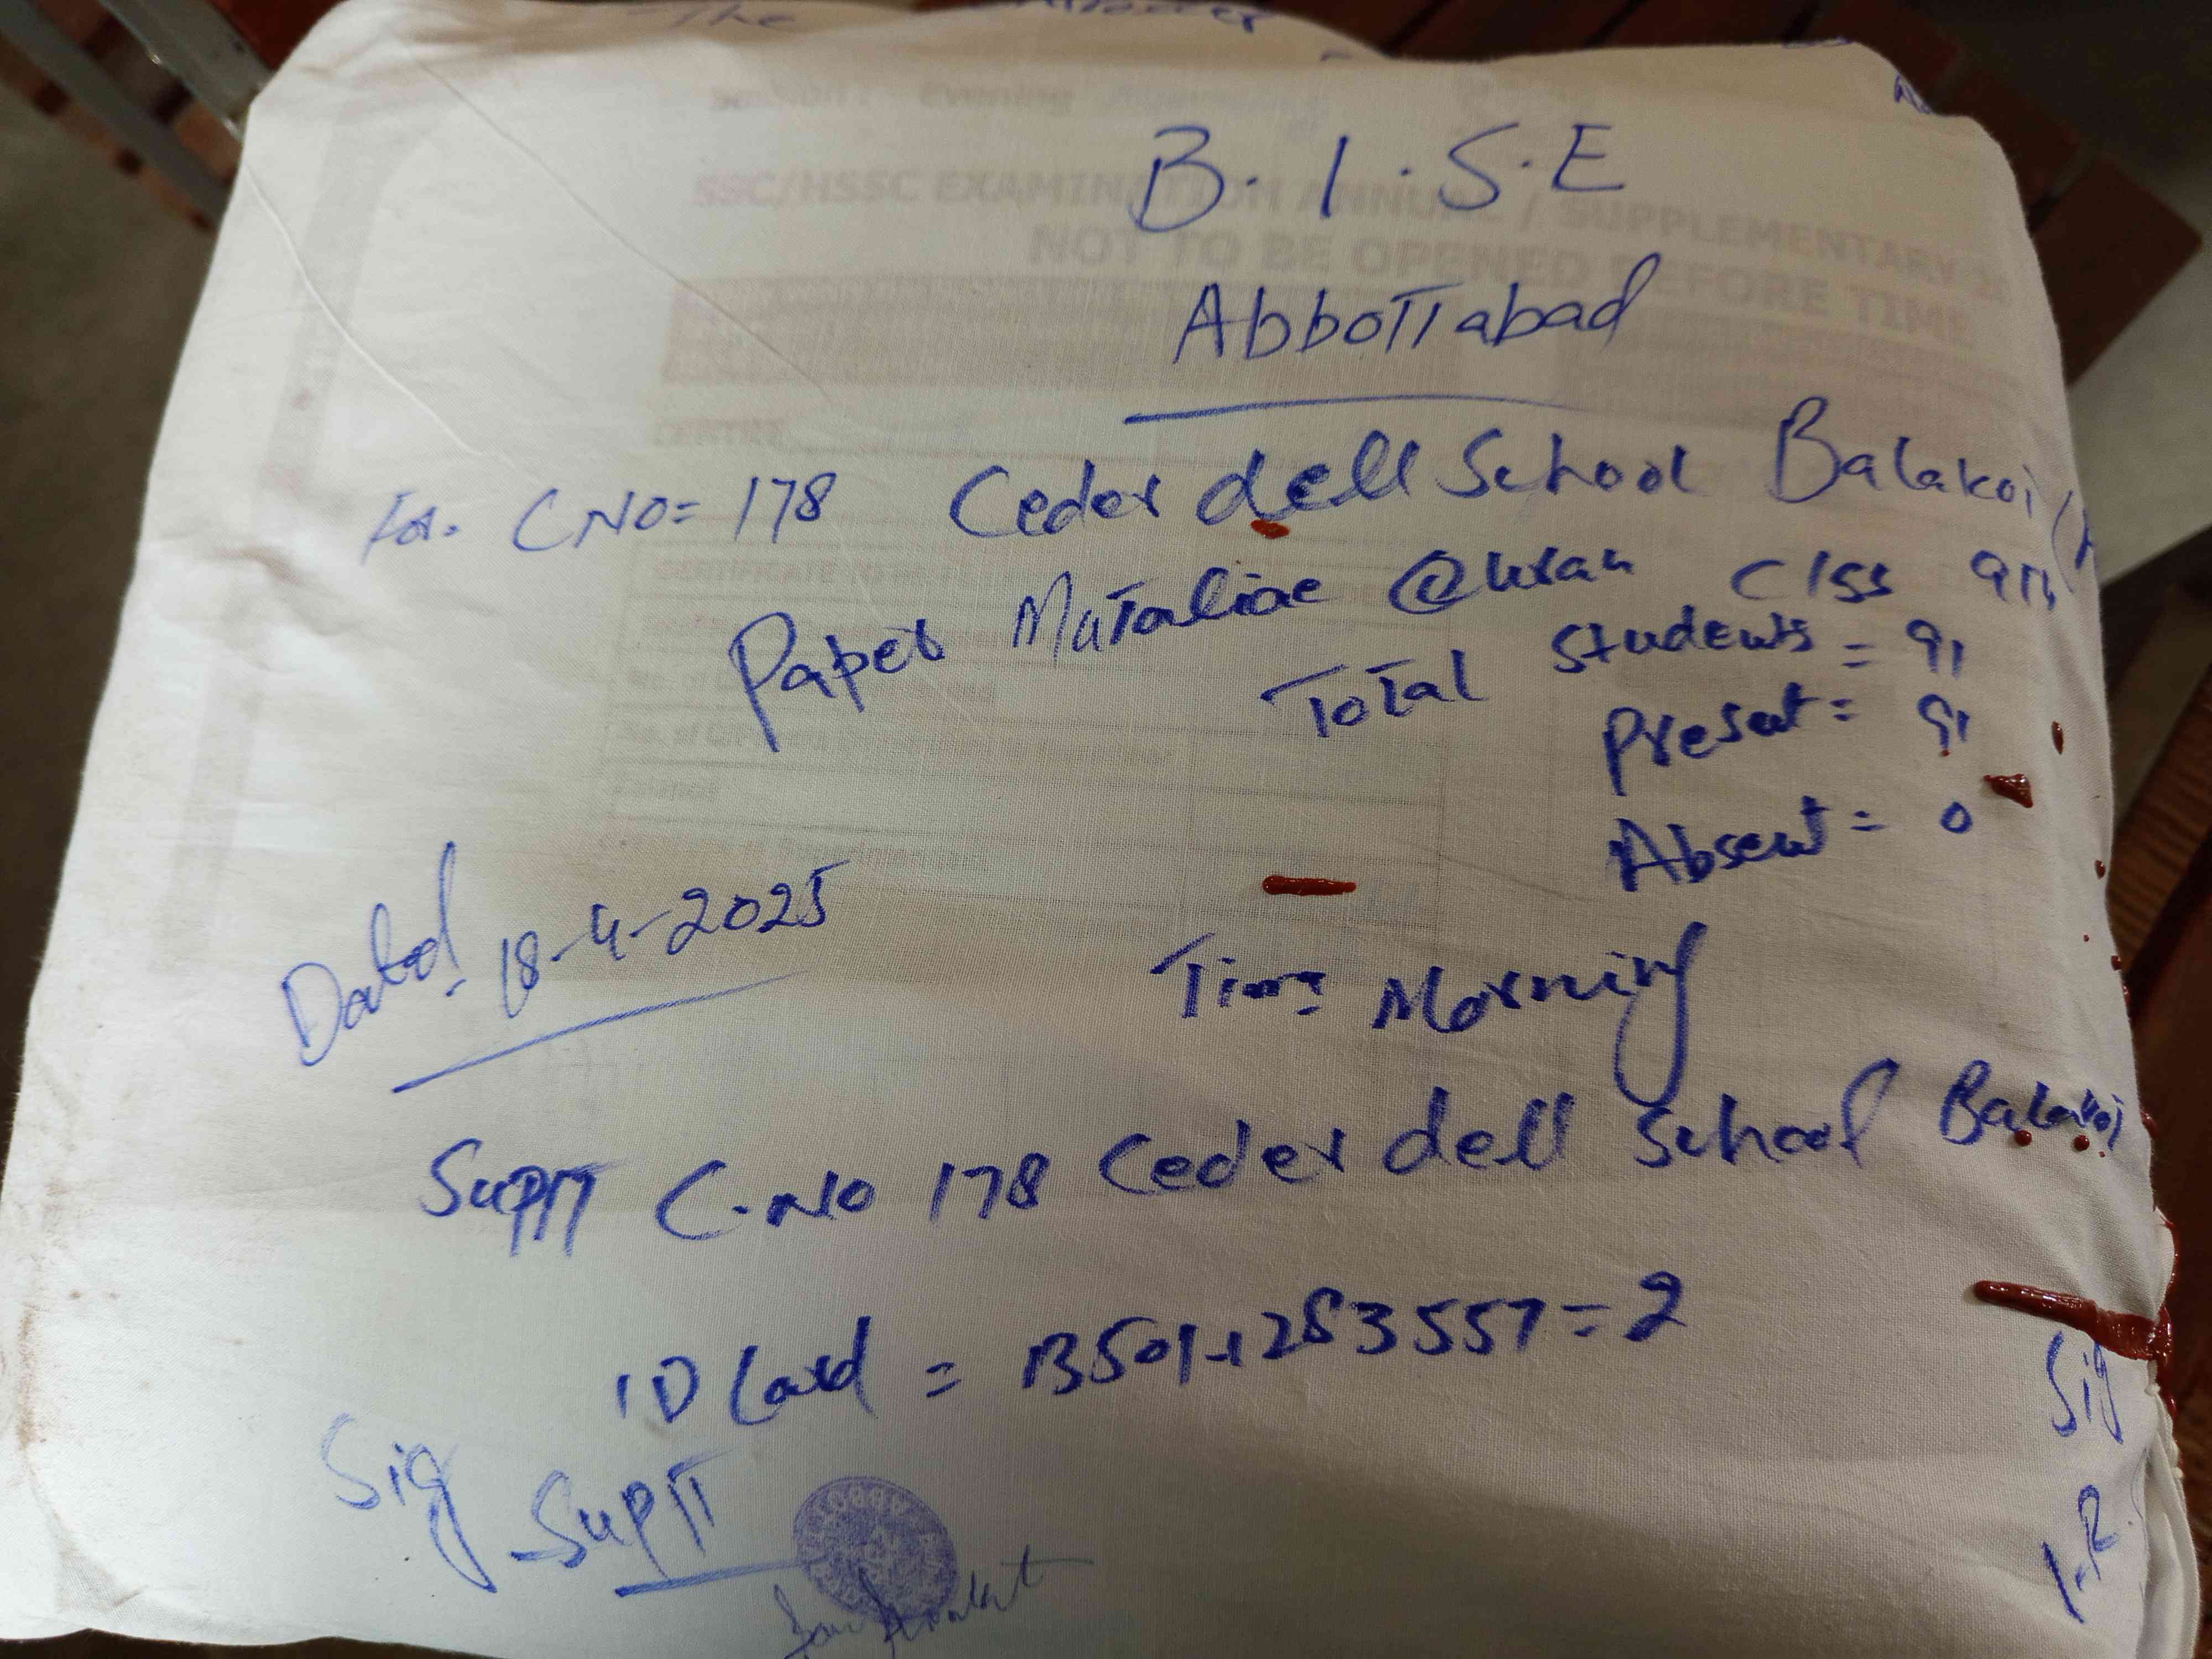 The
B.I.S.E
SSC/HSSC EXAMINATION ANNUAL / SUPPLEMENTARY
NOT TO BE OPENED BEFORE TIME
AbboTTabad
For. C NO= 178 Ceder dell School Balakoi
Paper MuTaliae @uran Clss 9Th
ToTal Students = 91
Present = 91
Absent = 0
Dated. 18-4-2025
Time Morning
SupTT C.No 178 Ceder dell School Balakoi
ID Card = 13501-1283557=2
Sig
Sig SupTT
I-R.